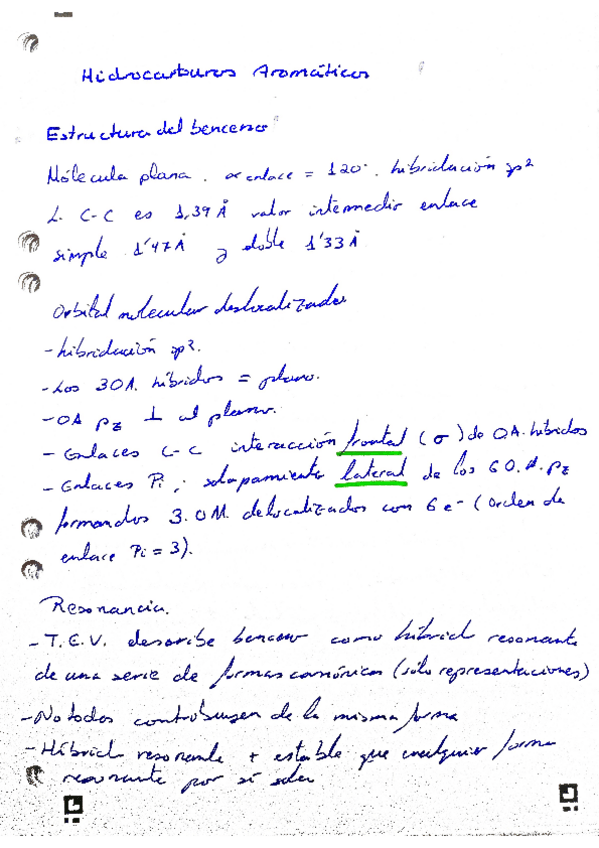 Hidrocarburos Aromáticos
Estructura del benceno
Molécula plana. α enlace = 120°. hibridación sp²
L. C-C es 1,39 Å valor intermedio enlace
simple 1'47 Å y doble 1'33 Å
Orbital molecular deslocalizado
- hibridación sp².
- Los 3 OA. híbridos = plano.
- OA pz ⊥ al plano.
- Enlaces C-C interacción frontal (σ) de OA. híbridos
- Enlaces Pi; solapamiento lateral de los 6 O.A. pz
formandos 3.OM. delocalizados con 6 e- (orden de
enlace Pi = 3).
Resonancia.
- T.E.V. describe benceno como híbrido resonante
de una serie de formas canónicas (sólo representaciones)
- No todos contribuyen de la misma forma
- Híbrido resonante + estable que cualquier forma
resonante por sí sola